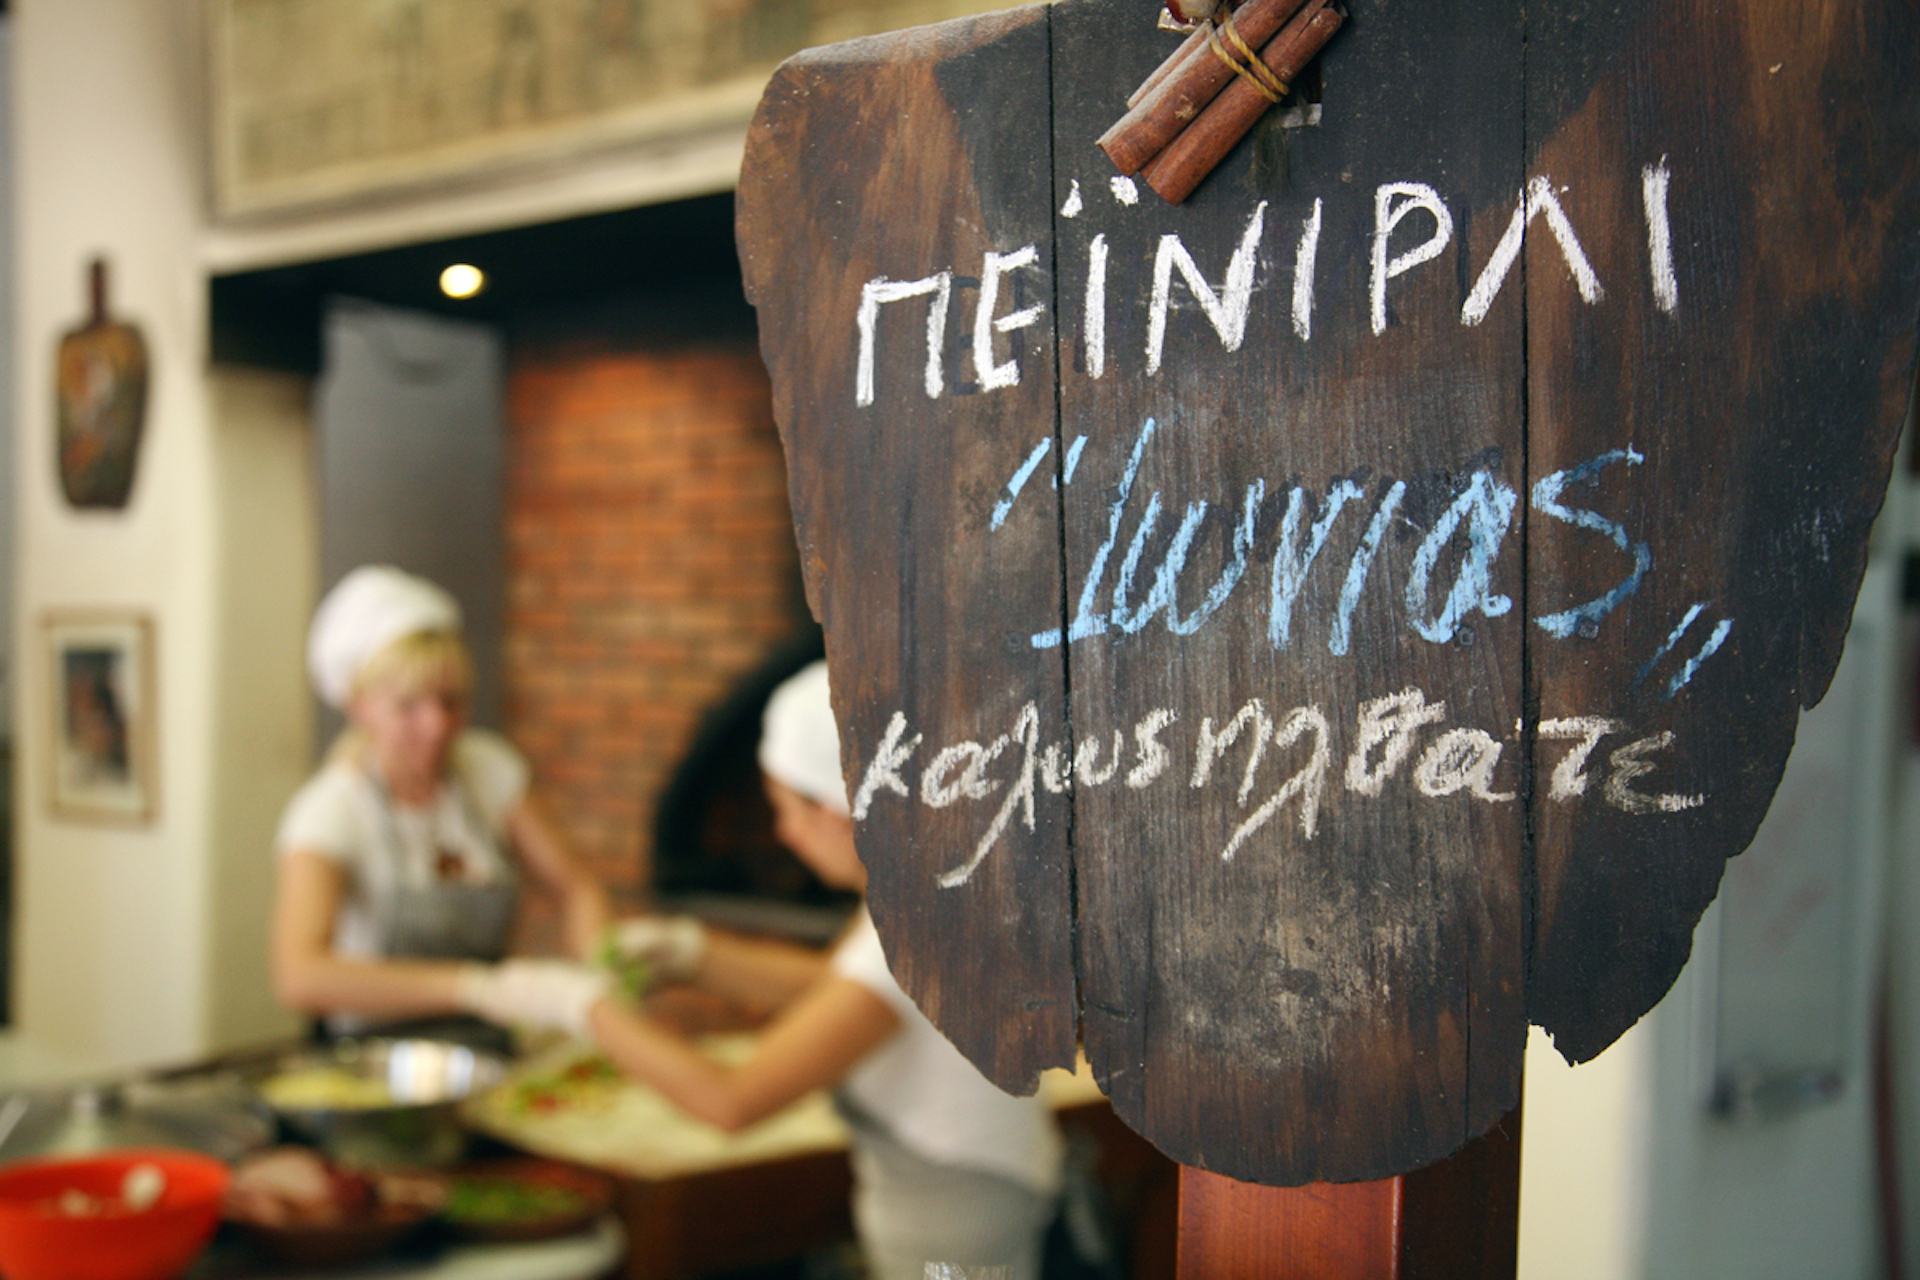 ΠΕΪΝΙΡΛΙ
"Ιωνίας"
καλώς ήλθατε